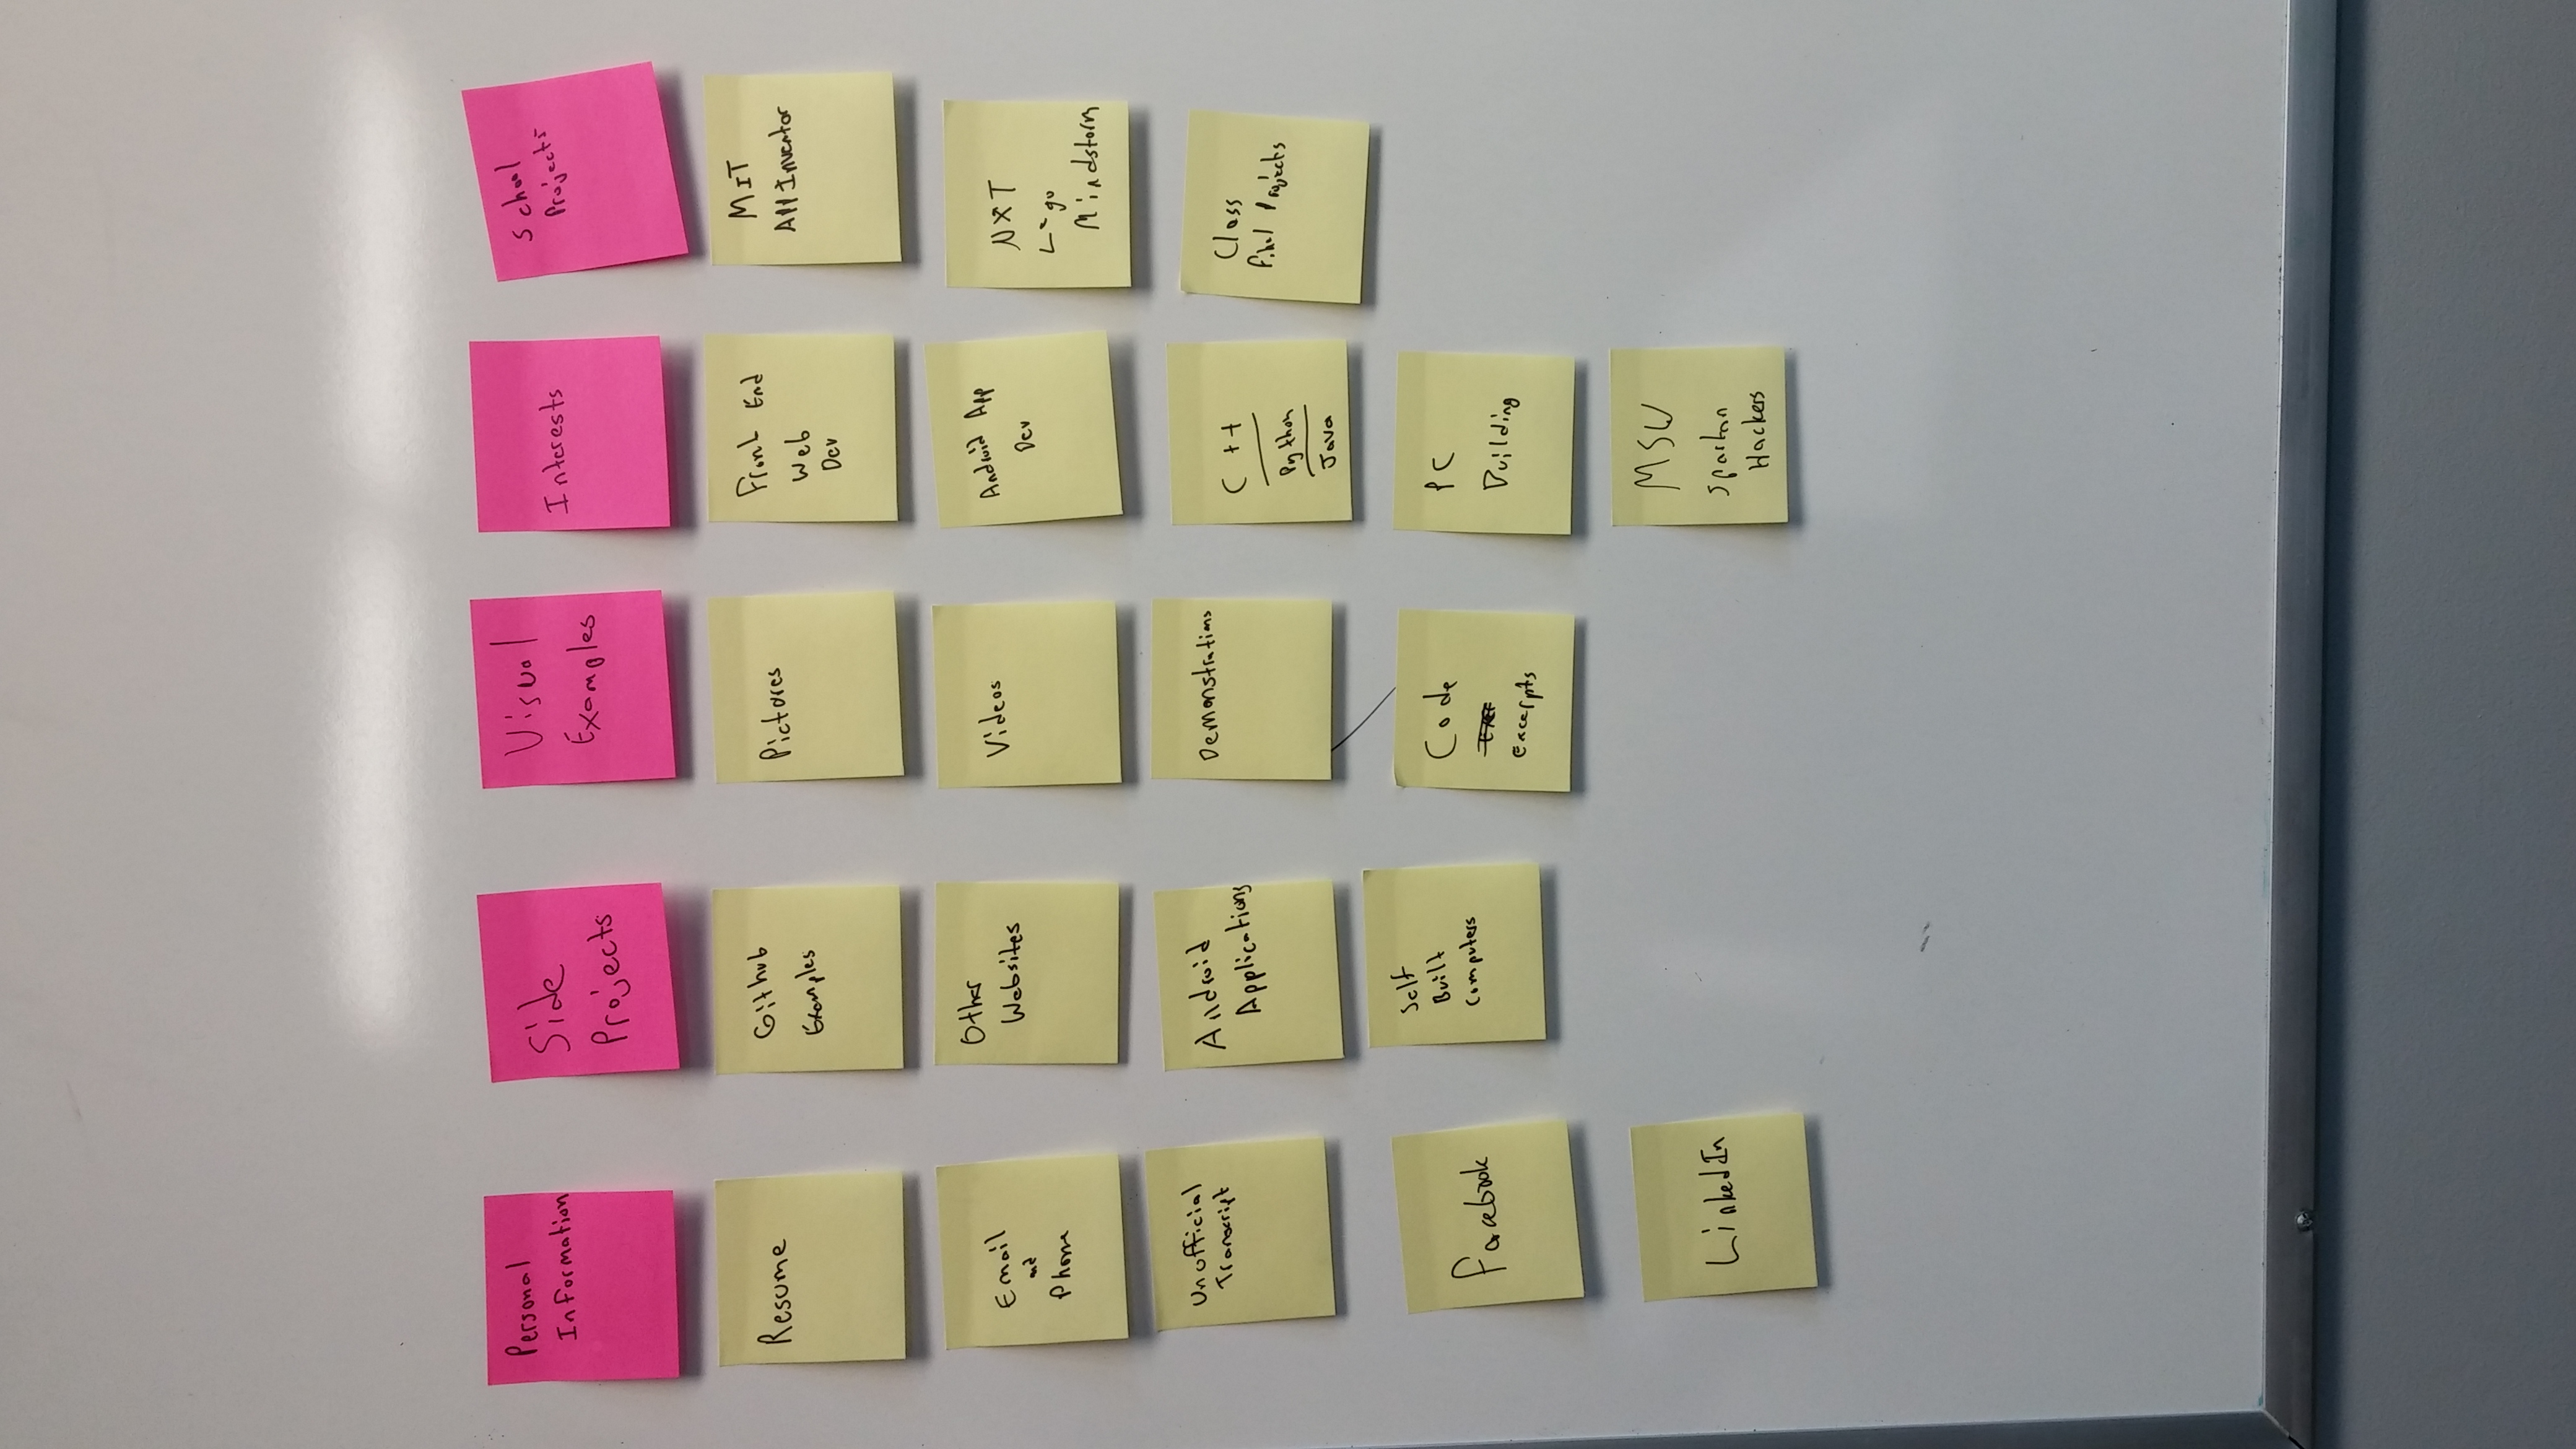 Personal
Information
Resume
Email
and
Phone
Unofficial
Transcript
Facebook
LinkedIn
Side
Projects
Github
Examples
Other
Websites
Android
Applications
Self
Built
Computers
Visual
Examples
Pictures
Videos
Demonstrations
Code
Excerpts
Interests
Front End
Web
Dev
Android App
Dev
C++
Python
Java
PC
Building
MSU
Spartan
Hackers
School
Projects
MIT
App Inventor
NXT
Lego
Mindstorm
Class
Final Projects